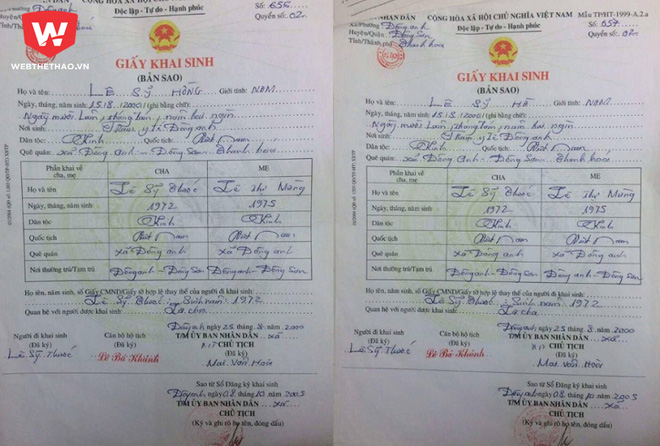 WEBTHETHAO.VN
NHÂN DÂN
CỘNG HÒA XÃ HỘI CHỦ NGHĨA VIỆT NAM
Độc lập - Tự do - Hạnh phúc
Xã/Phường Đông anh
Số: 656
Quyển số: 02
GIẤY KHAI SINH
(BẢN SAO)
Họ và tên: LÊ SỸ HỒNG Giới tính: NAM
Ngày, tháng, năm sinh: 15.8.2000 (ghi bằng chữ):
Ngày mười lăm, tháng tám, năm hai ngàn
Nơi sinh: Trạm y tế Đông anh
Dân tộc: Kinh Quốc tịch: Việt Nam
Quê quán: xã Đông Anh - Đông Sơn - Thanh hoá
Phần khai về cha, mẹ CHA MẸ
Họ và tên Lê Sỹ Thược Lê Thị Mừng
Ngày, tháng, năm sinh 1972 1975
Dân tộc Kinh Kinh
Quốc tịch Việt Nam Việt Nam
Quê quán xã Đông anh xã Đông anh
Nơi thường trú/Tạm trú Đông anh - Đông Sơn Đông anh - Đông Sơn
Họ tên, năm sinh, số Giấy CMND/Giấy tờ hợp lệ thay thế của người đi khai sinh:
Lê Sỹ Thược, Sinh năm 1972
Quan hệ với người được khai sinh: Là cha
Đông anh ngày 25 tháng 8 năm 2000
Người đi khai sinh
(Đã ký)
Lê Sỹ Thược
Cán bộ hộ tịch
(Đã ký)
Lê Bá Khánh
T/M ỦY BAN NHÂN DÂN xã
CHỦ TỊCH
(Đã ký)
Mai Văn Hoà
Sao từ Sổ Đăng ký khai sinh
Đông anh ngày 08 tháng 10 năm 2005
T/M ỦY BAN NHÂN DÂN xã
CHỦ TỊCH
(Ký và ghi rõ họ tên, đóng dấu)
NHÂN DÂN
CỘNG HÒA XÃ HỘI CHỦ NGHĨA VIỆT NAM
Mẫu TPHT-1999-A.2.a
Xã/Phường Đông anh
Độc lập - Tự do - Hạnh phúc
Số: 657
Huyện/Quận Đông Sơn
Quyển số: 02
Tỉnh/Thành phố Thanh hoá
GIẤY KHAI SINH
(BẢN SAO)
Họ và tên: LÊ SỸ HÀ Giới tính: NAM
Ngày, tháng, năm sinh: 15.8.2000 (ghi bằng chữ):
Ngày mười lăm, tháng tám, năm hai ngàn
Nơi sinh: Trạm y tế Đông anh
Dân tộc: Kinh Quốc tịch: Việt Nam
Quê quán: xã Đông Anh - Đông Sơn - Thanh hoá
Phần khai về cha, mẹ CHA MẸ
Họ và tên Lê Sỹ Thược Lê Thị Mừng
Ngày, tháng, năm sinh 1972 1975
Dân tộc Kinh Kinh
Quốc tịch Việt Nam Việt Nam
Quê quán xã Đông anh xã Đông anh
Nơi thường trú/Tạm trú Đông anh - Đông Sơn Đông anh - Đông Sơn
Họ tên, năm sinh, số Giấy CMND/Giấy tờ hợp lệ thay thế của người đi khai sinh:
Lê Sỹ Thược, Sinh năm 1972
Quan hệ với người được khai sinh: Là cha
Đông anh ngày 25 tháng 8 năm 2000
Người đi khai sinh
(Đã ký)
Lê Sỹ Thược
Cán bộ hộ tịch
(Đã ký)
Lê Bá Khánh
T/M ỦY BAN NHÂN DÂN xã
CHỦ TỊCH
(Đã ký)
Mai Văn Hoà
Sao từ Sổ Đăng ký khai sinh
Đông anh ngày 08 tháng 10 năm 2005
T/M ỦY BAN NHÂN DÂN xã
CHỦ TỊCH
(Ký và ghi rõ họ tên, đóng dấu)